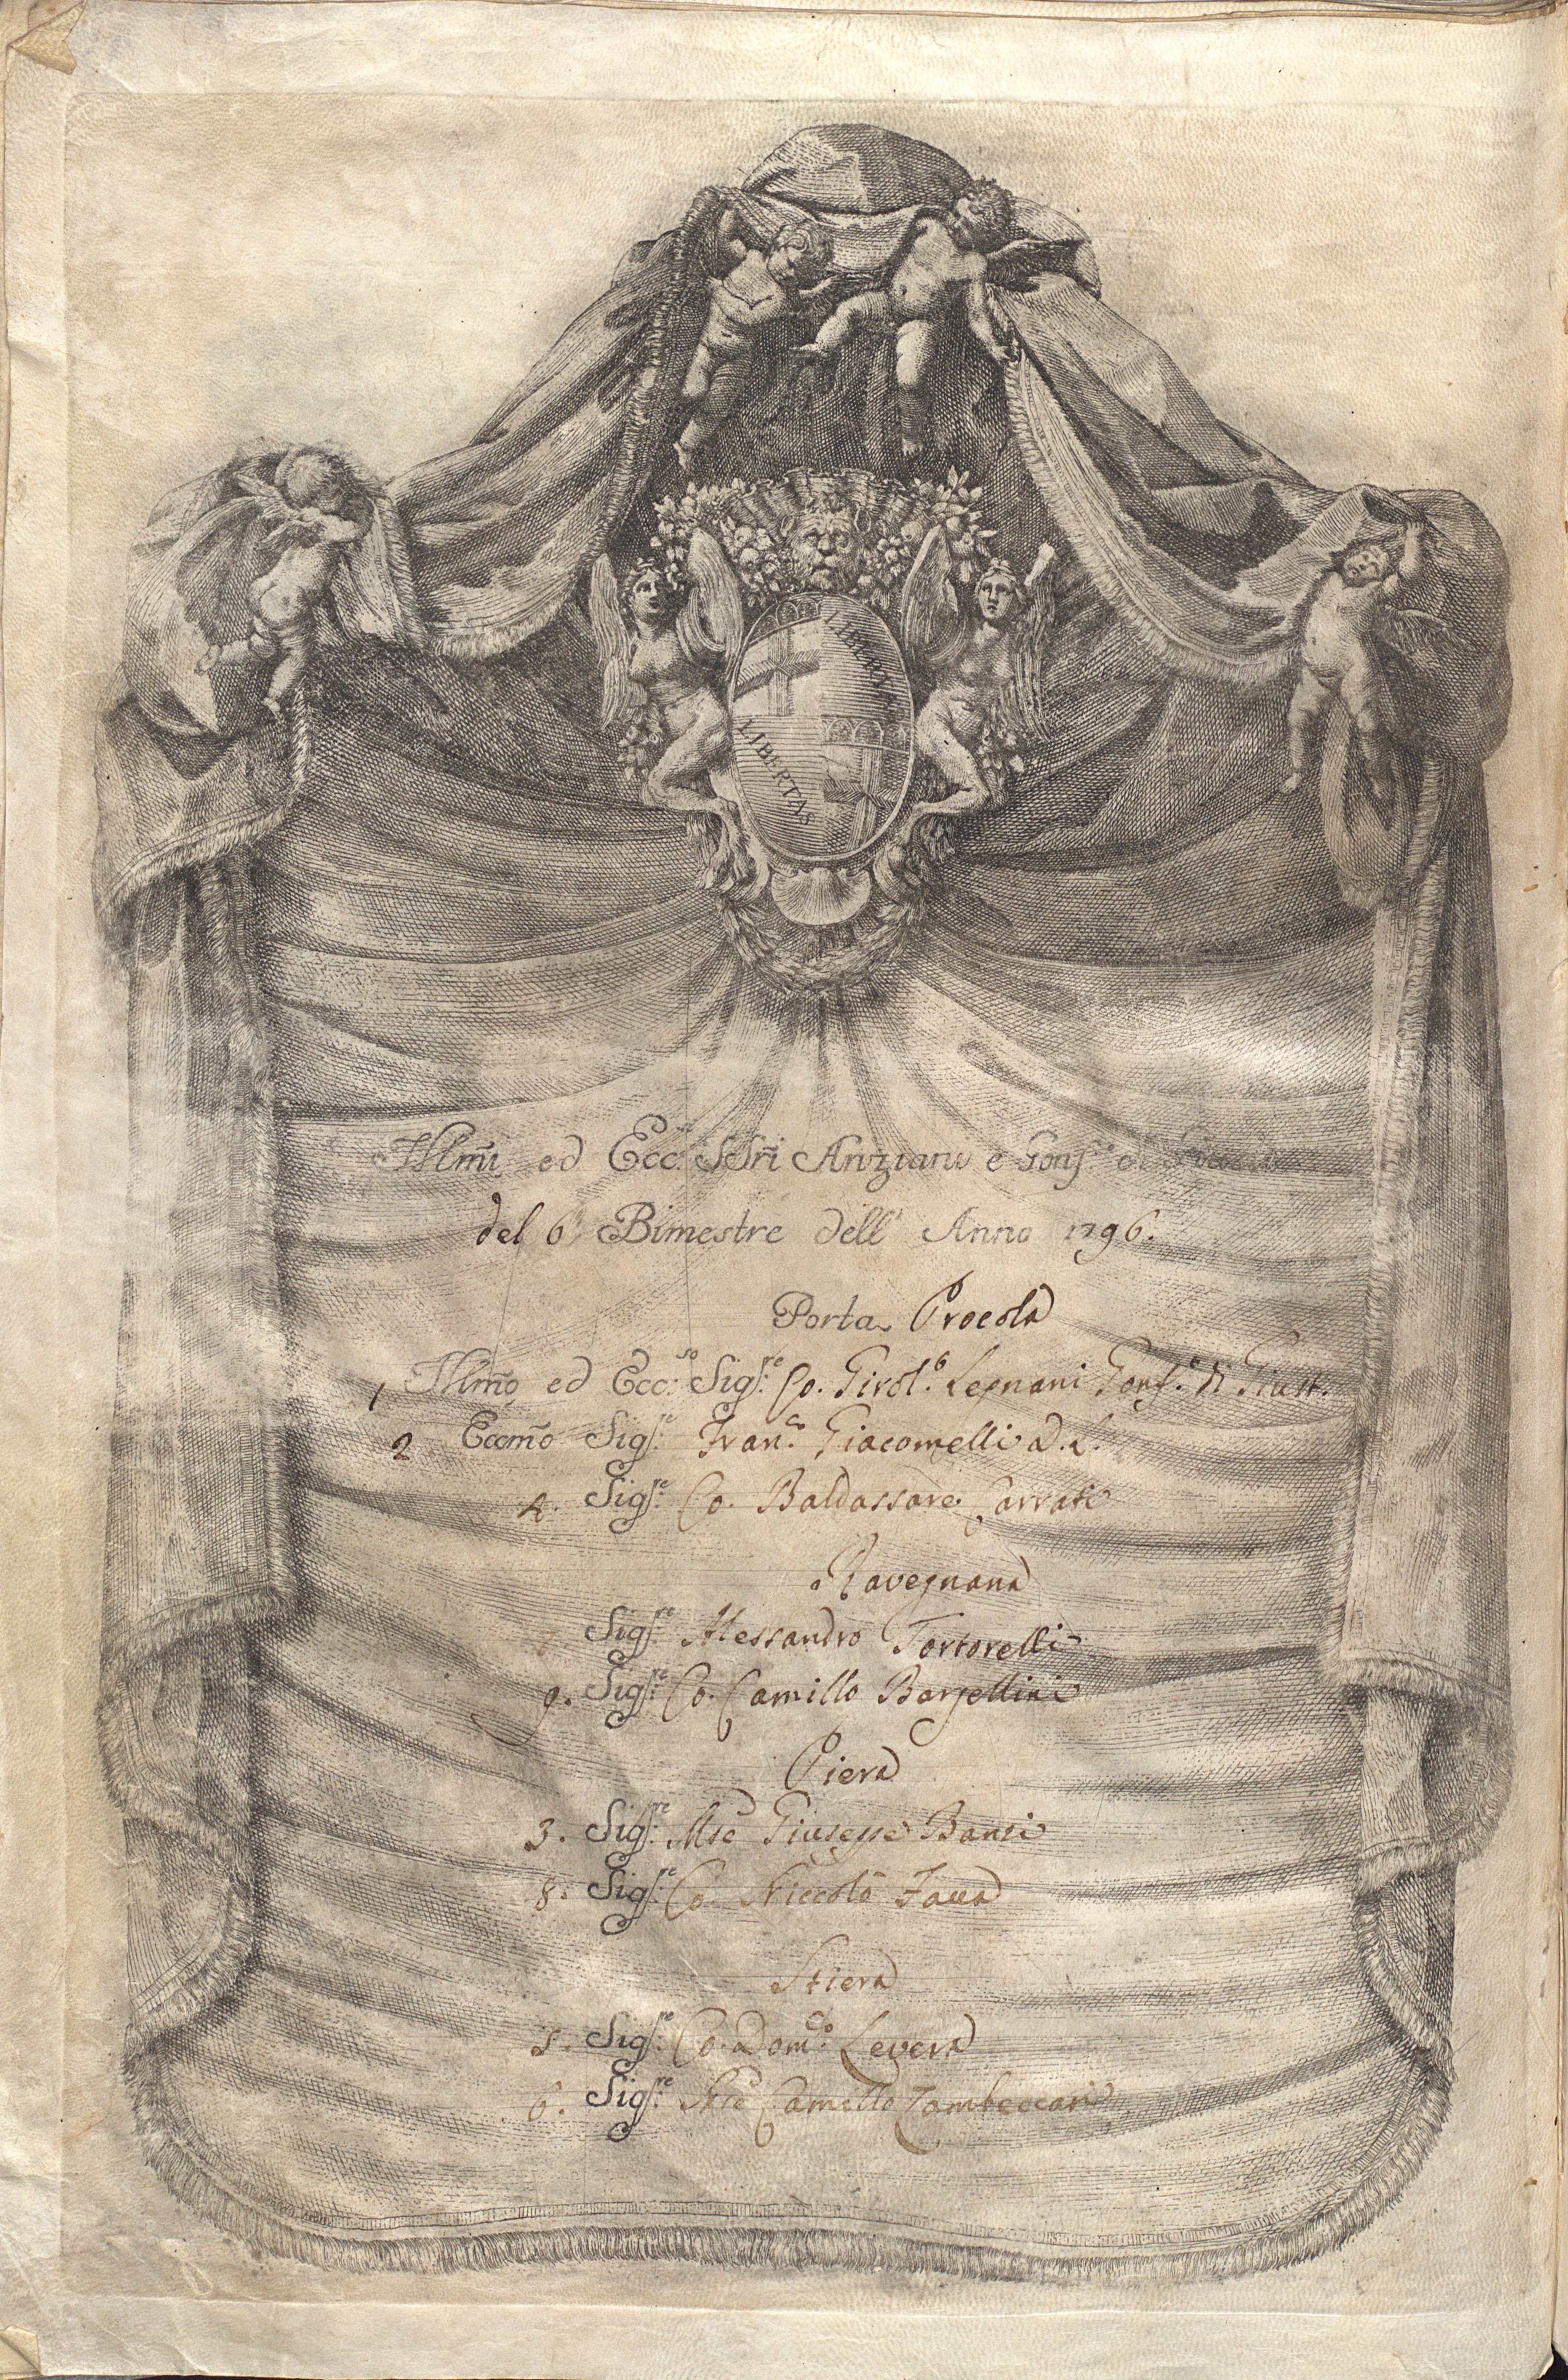 LIBERTAS
LIBERTAS
Illm̃i ed Ecc.si SSri Anziani e Gonf.e di
del 6.º Bimestre dell' Anno 1796.
Porta Procola
1 Illm̃o ed Ecc.so Sig.re Co. Girol.º Legnani Gonf.e di Giust.
2 Eccm̃o Sig.re Fran.co Giacomelli D.L.
4. Sig.re Co. Baldassare Carrati
Ravegnana
Sig.re Alessandro Tortorelli
9. Sig.re Co. Camillo Bargellini
Piera
3. Sig.re Mse Giuseppe Banzi
8. Sig.re Co. Niccolò Fava
Stiera
5. Sig.re Co. Dom.co Levera
6. Sig.re Mse Camillo Zambeccari